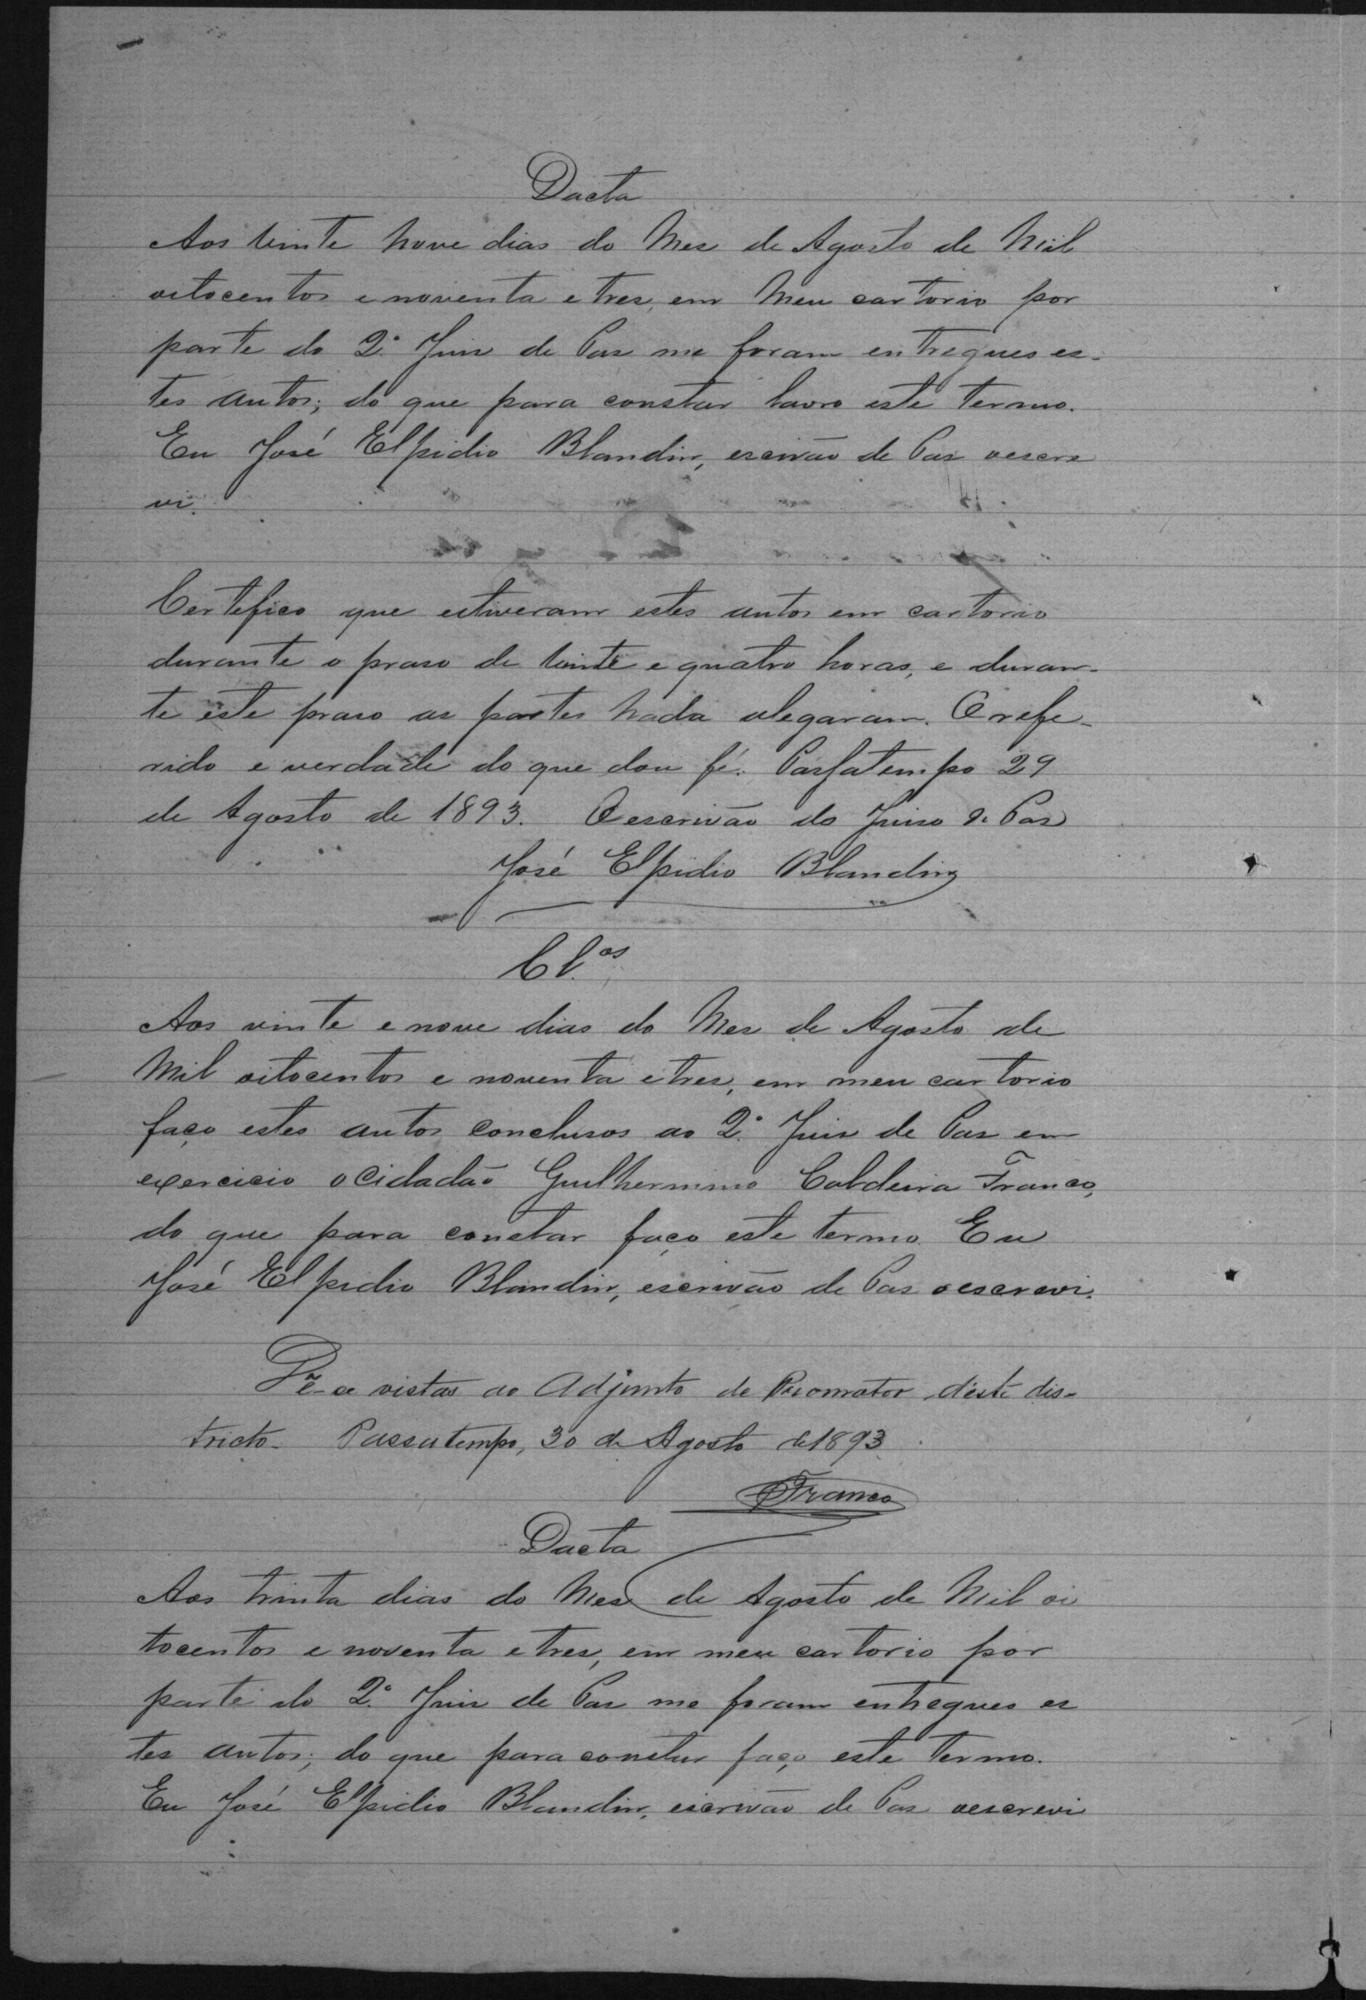 Dacta
Aos vinte nove dias do Mes de Agosto de Mil
oitocentos e noventa e tres, em Meu cartorio por
parte do 2º Juis de Pas me foram entregues es-
tes autos; do que para constar lavro este termo.
Eu José Elpidio Blandin, escrivão de Pas oescre
vi.
Certefico que estiveram estes autos em cartorio
durante o praso de vinte e quatro horas, e duran-
te este praso as partes nada alegaram. O refe-
rido e verdade do que dou fé. Passatempo 29
de Agosto de 1893. O escrivão do Juiso de Pas
José Elpidio Blandin
Cl.os
Aos vinte e nove dias do Mes de Agosto de
Mil oitocentos e noventa e tres, em meu cartorio
faço estes autos conclusos ao 2º Juis de Pas em
exercicio o Cidadão Guilhermino Caldeira Franco,
do que para constar faço este termo. Eu
José Elpidio Blandin, escrivão de Pas oescrevi.
vistas ao Adjunto de Promotor déste dis-
tricto. Passatempo, 30 de Agosto de 1893
Franco
Dacta
Aos trinta dias do Mes de Agosto de Mil oi
tocentos e noventa e tres, em meu cartorio por
parte do 2º Juis de Pas me foram entregues es
tes autos; do que para constar faço este termo.
Eu José Elpidio Blandin, escrivão de Pas oescrevi